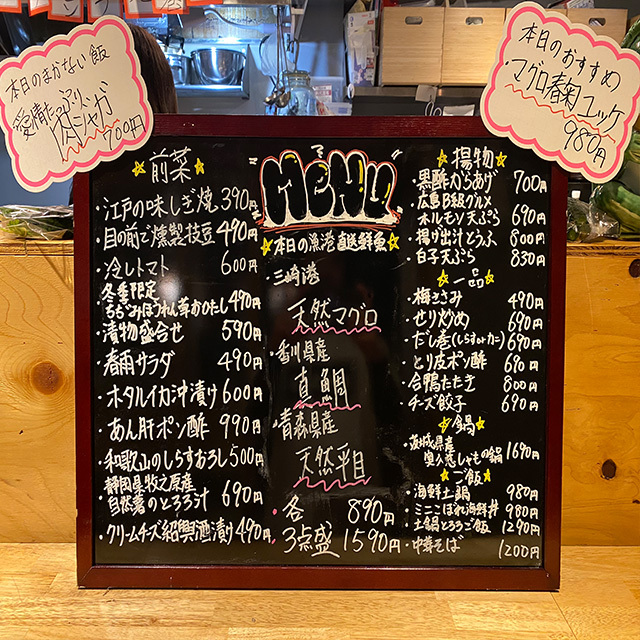 本日のまかない飯
愛情たっぷり
肉ジャガ
700円
本日のおすすめ
・マグロ春菊ユッケ
980円
前菜
・江戸の味しぎ焼 390円
・目の前で燻製枝豆 490円
・冷しトマト 600円
冬季限定
・ちぢみほうれん草おひたし 490円
・漬物盛合せ 590円
・春雨サラダ 490円
・ホタルイカ沖漬け 600円
・あん肝ポン酢 990円
・和歌山のしらすおろし 500円
静岡県牧之原産
・自然薯のとろろ汁 690円
・クリームチーズ紹興酒漬け 490円
MENU
本日の漁港直送鮮魚
三崎港
天然マグロ
・香川県産
真鯛
・青森県産
天然平目
・各 890円
・3点盛 1590円
揚物
・黒酢からあげ 700円
・広島B級グルメ
ホルモン天ぷら 690円
・揚げ出汁とうふ 800円
・白子天ぷら 830円
一品
・梅ささみ 490円
・せり炒め 690円
・だし巻(しらすorカニ) 690円
・とり皮ポン酢 690円
・合鴨たたき 800円
・チーズ餃子 690円
鍋
・茨城県産
1690円
ご飯
・海鮮土鍋 980円
・ミニこぼれ海鮮丼 980円
・土鍋とろろご飯 1290円
・中華そば 1200円